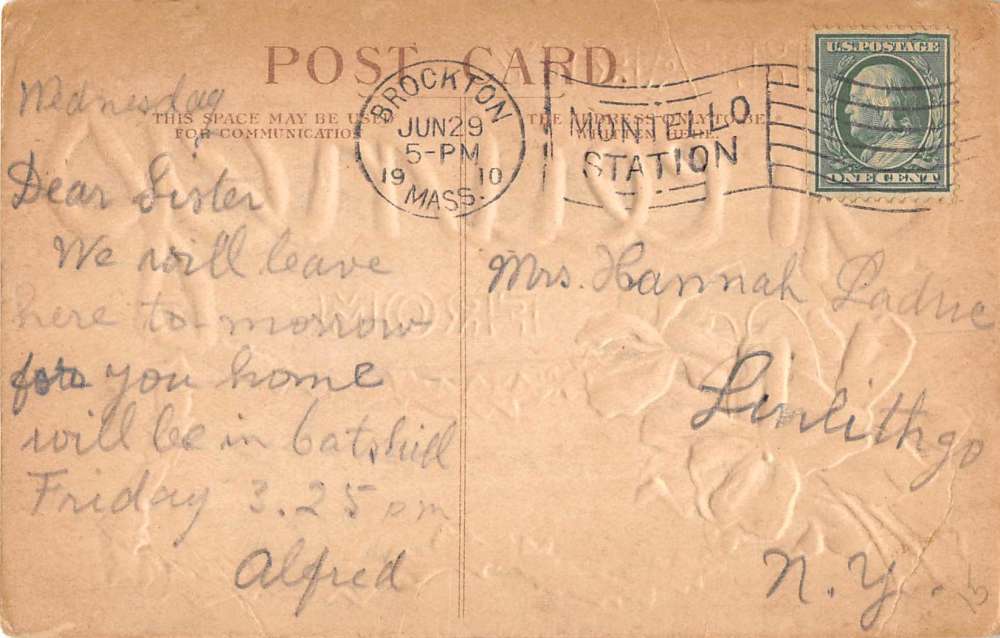 POST CARD.
THIS SPACE MAY BE USED
FOR COMMUNICATION
THE ADDRESS ONLY TO BE
WRITTEN HERE.
BROCKTON
JUN 29
5-PM
19 10
MASS.
MONTELLO
STATION
U.S. POSTAGE
ONE CENT
Wednesday
Dear Sister
We will leave
here to-morrow
for you home
will be in Catskill
Friday 3.25 pm
Alfred
Mrs. Hannah Laduc
Linlithgo
N.Y.
FROM